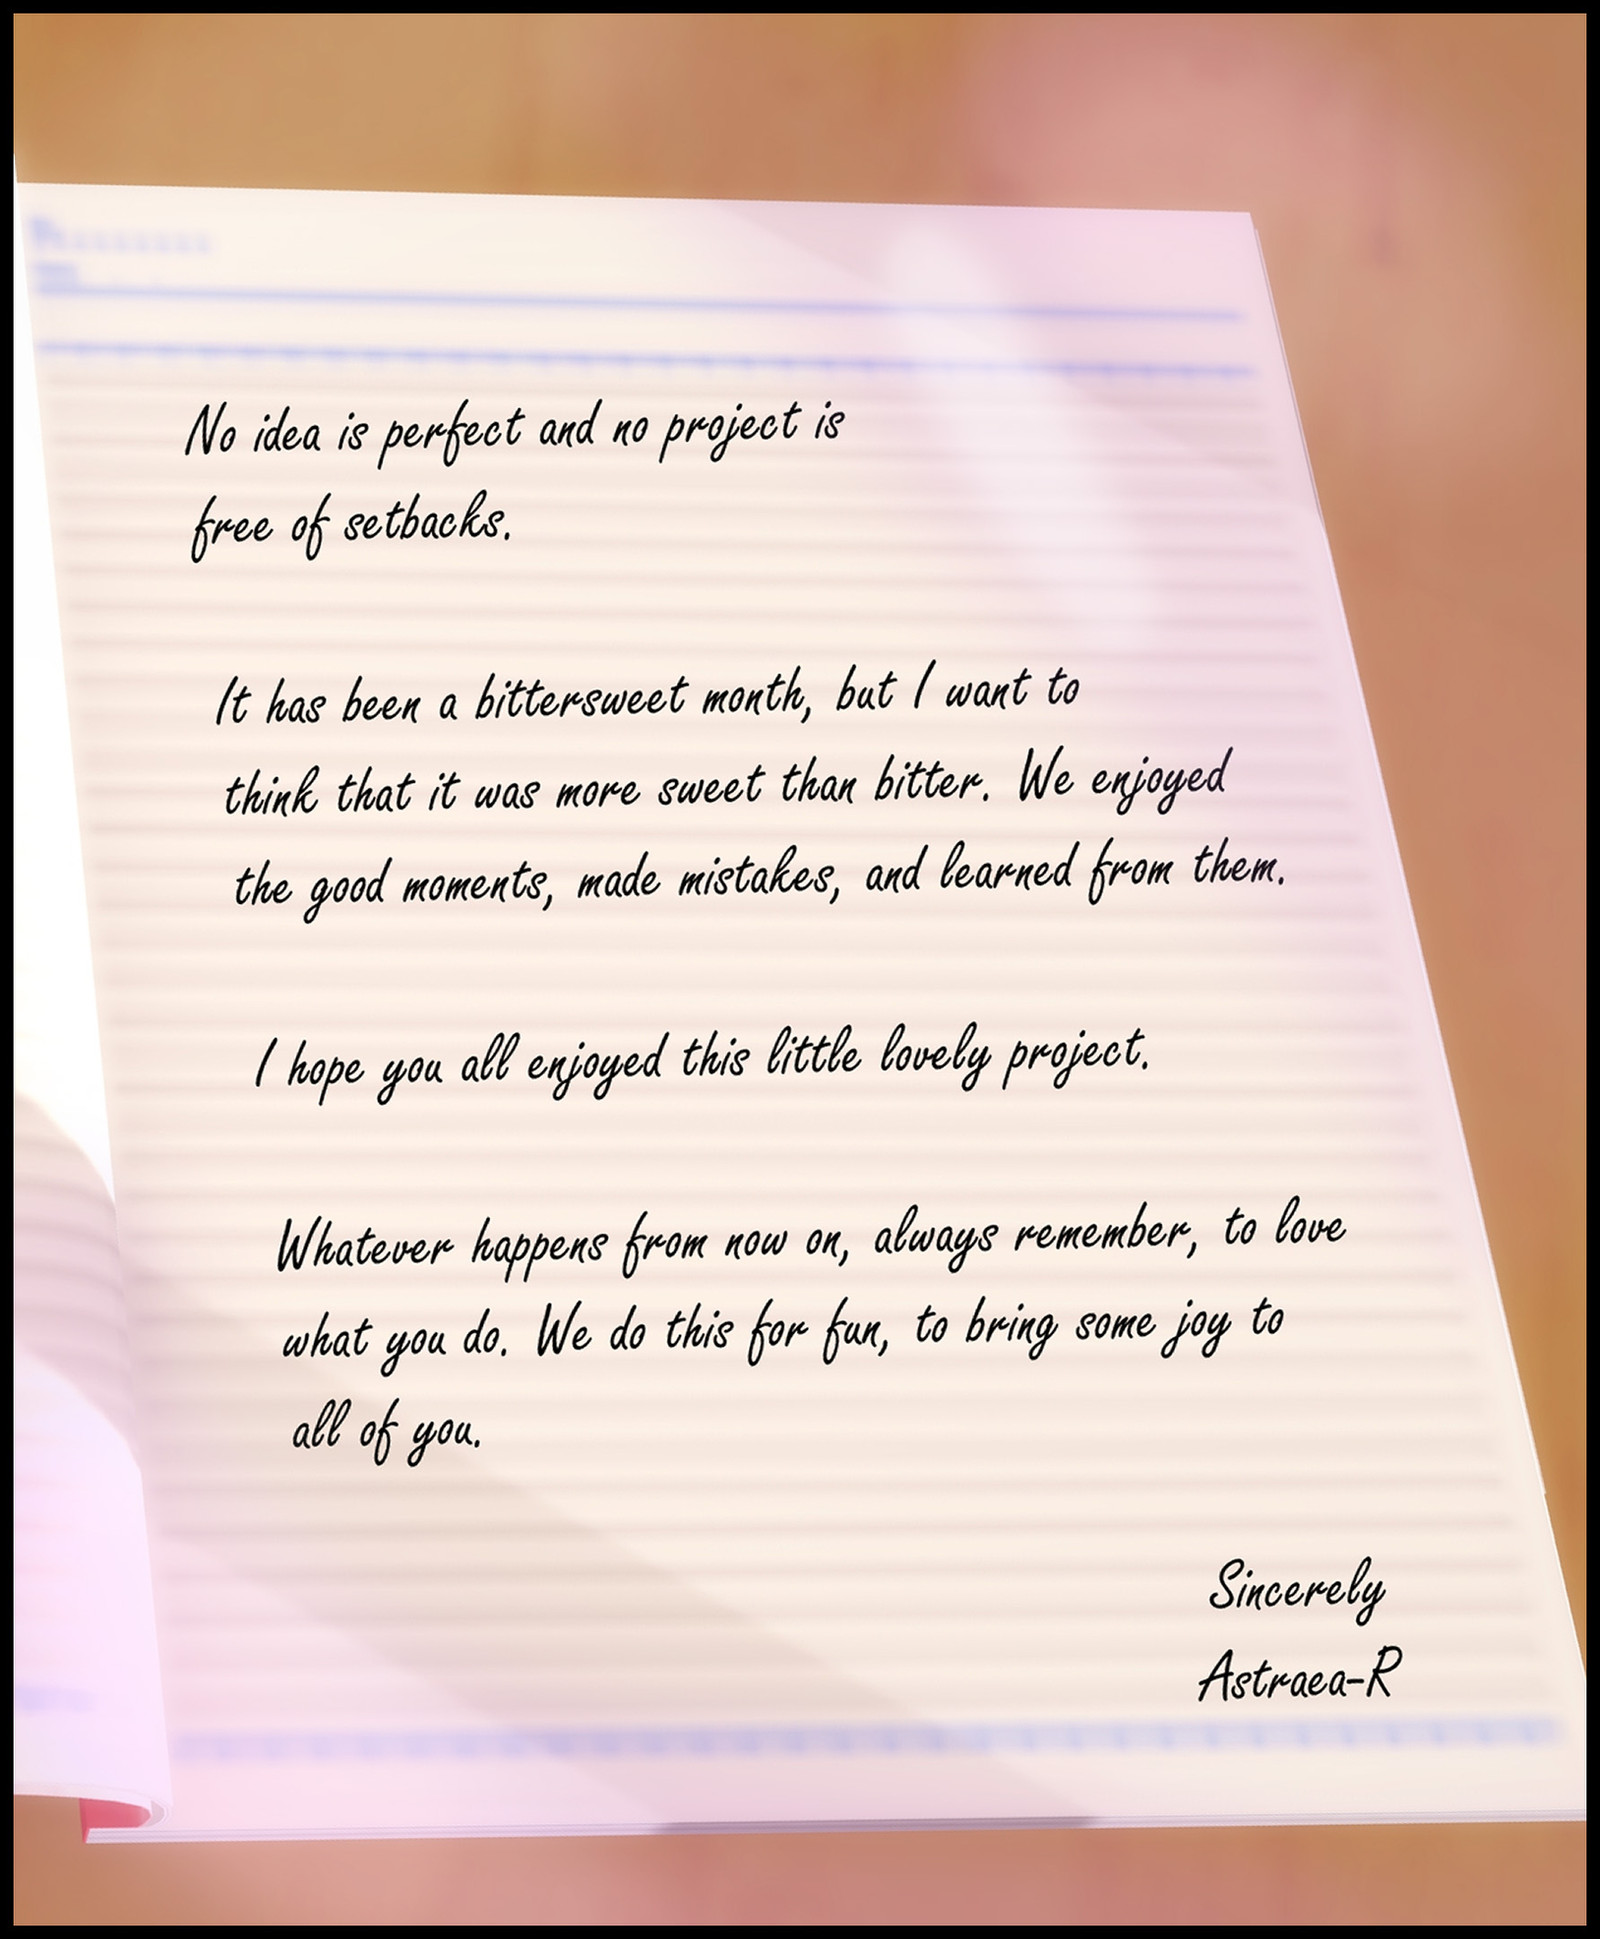 No idea is perfect and no project is
free of setbacks.
It has been a bittersweet month, but I want to
think that it was more sweet than bitter. We enjoyed
the good moments, made mistakes, and learned from them.
I hope you all enjoyed this little lovely project.
Whatever happens from now on, always remember, to love
what you do. We do this for fun, to bring some joy to
all of you.
Sincerely
Astraea-R